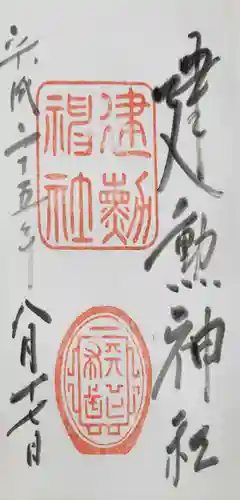 建勲神社
建勲
神社
平成二十五年 八月十七日